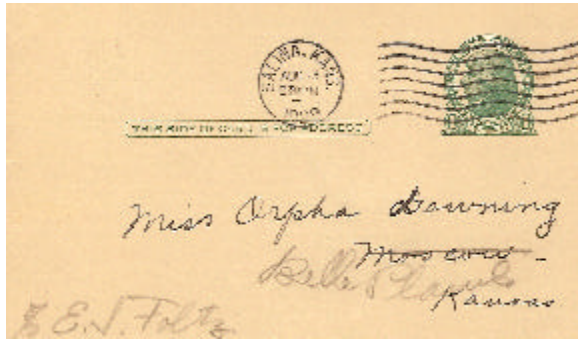 SALINA, KANS.
AUG
THIS SIDE OF CARD IS FOR ADDRESS
Miss Orpha Downing
Moscow -
Belle Plaine
Kansas
% E. J. Foltz